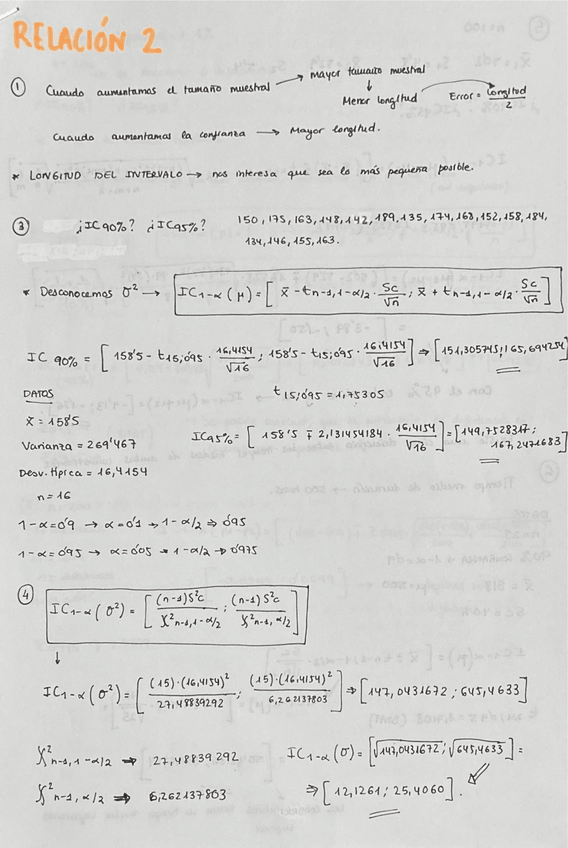 RELACIÓN 2
① Cuando aumentamos el tamaño muestral → mayor tamaño muestral
↓
Menor longitud Error = Longitud / 2
Cuando aumentamos la confianza → Mayor longitud.
* LONGITUD DEL INTERVALO → nos interesa que sea lo más pequeña posible.
③ ¿IC 90%? ¿IC 95%? 150, 175, 163, 148, 142, 189, 135, 174, 168, 152, 158, 184,
134, 146, 155, 163.
* Desconocemos σ² → IC1-α (μ) = [ x̄ - tn-1, 1-α/2 · Sc/√n ; x̄ + tn-1, 1-α/2 · Sc/√n ]
IC 90% = [ 158'5 - t15;0'95 · 16,4154/√16 ; 158'5 - t15;0'95 · 16,4154/√16 ] ⇒ [151,305745; 165,694254]
DATOS
t15;0'95 = 1,75305
x̄ = 158'5
IC95% = [ 158'5 ∓ 2,131454184 · 16,4154/√16 ] = [149,7528317;
167,2471683]
Varianza = 269'467
Desv. típica = 16,4154
n = 16
1-α = 0'9 → α = 0'1 → 1-α/2 → 0'95
1-α = 0'95 → α = 0'05 → 1-α/2 → 0'975
④ IC1-α (σ²) = [ (n-1)S²c / χ²n-1, 1-α/2 ; (n-1)S²c / χ²n-1, α/2 ]
↓
IC1-α (σ²) = [ (15)·(16,4154)² / 27,48839292 ; (15)·(16,4154)² / 6,262137803 ] ⇒ [147,0431672 ; 645,4633]
χ²n-1, 1-α/2 ⇒ 27,48839292 IC1-α (σ) = [√147,0431672 ; √645,4633] =
χ²n-1, α/2 ⇒ 6,262137803 ⇒ [12,1261 ; 25,4060].